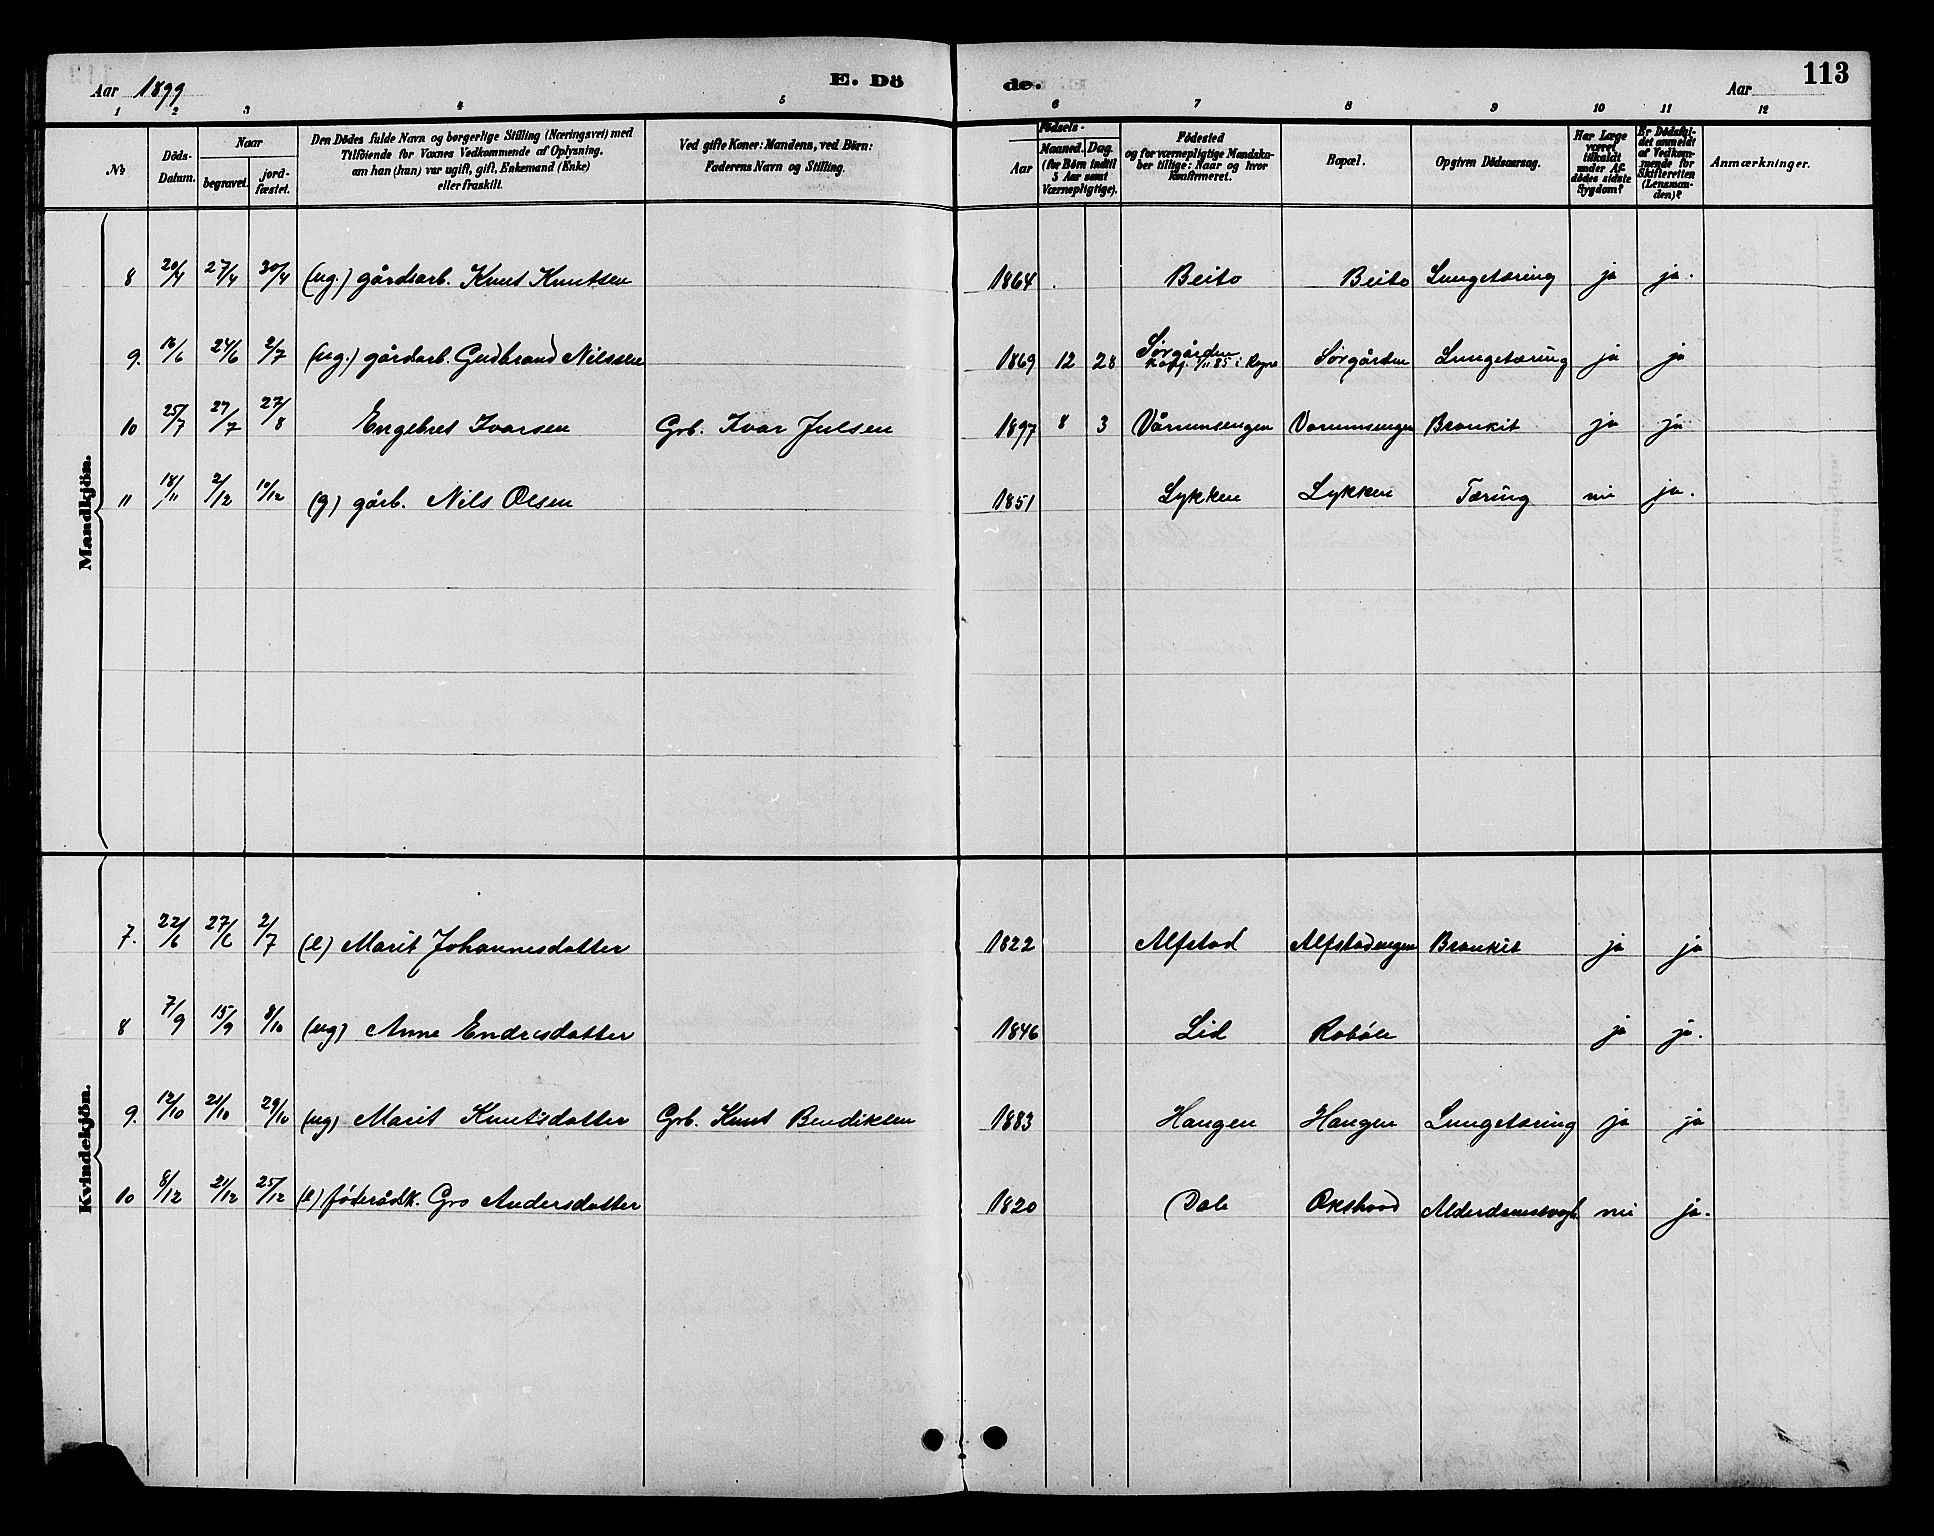 Aar 1899
E. Dö
de.
Aar
113
1 2 3 4 5 6 7 8 9 10 11 12
№
Döds-
Datum.
Naar
begravet.
jord-
fæstet.
Den Dödes fulde Navn og borgerlige Stilling (Næringsvei) med
Tilföiende for Voxnes Vedkommende af Oplysning,
om han (hun) var ugift, gift, Enkemand (Enke)
eller fraskilt.
Ved gifte Koner: Mandens, ved Börn:
Faderens Navn og Stilling.
Födsels-
Aar
Maaned. Dag.
(for Börn indtil
5 Aar samt
Værnepligtige).
Födested
og for værnepligtige Mandska-
ber tillige: Naar og hvor
konfirmeret.
Bopæl.
Opgiven Dödsaarsag.
Har Læge
været
tilkaldt
under Af-
dödes sidste
Sygdom?
Er Dödsfal-
det anmeldt
af Vedkom-
mende for
Skifteretten
(Lensman-
den)?
Anmærkninger.
Mandkjön.
8 20/4 27/4 30/4 (ug.) gårdsarb. Knut Knutsen 1864 Beito Beito Lungetæring ja ja.
9. 16/6 24/6 2/7 (ug.) gårdarb. Gudbrand Nilssen 1869 12 28 Sørgården Sørgården Lungetæring ja ja
konf. 1/11 85 i Rogne
10 25/7 27/7 27/8 Engebret Ivarsen Grb. Ivar Julsen 1897 8 3 Vårumsengen Varumsengen Bronkit ja ja
11 18/11 2/12 10/12 (g) gårb. Nils Olsen 1851 Lykken Lykken Tæring nei ja.
Kvindekjön.
7. 22/6 27/6 2/7 (e) Marit Johannesdatter 1822 Alfstad Alfstadengen Bronkit ja ja
8 7/9 15/9 8/10 (ug) Anne Endresdatter 1846 Lid Robøle ja ja.
9. 12/10 21/10 29/10 (ug) Marit Knutsdatter Grb. Knut Bendiksen 1883 Haugen Haugen Lungetæring ja ja
10 8/12 21/12 25/12 (e) føderådsk. Gro Andersdatter 1820 Dale Okshovd nei ja.